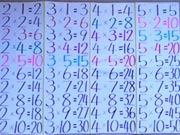 2·1=2 3·1=3 4·1=4 5·1=5
2·2=4 3·2=6 4·2=8 5·2=10
2·3=6 3·3=9 4·3=12 5·3=15
2·4=8 3·4=12 4·4=16 5·4=20
2·5=10 3·5=15 4·5=20 5·5=25
2·6=12 3·6=18 4·6=24 5·6=30
2·7=14 3·7=21 4·7=28 5·7=35
2·8=16 3·8=24 4·8=32 5·8=40
2·9=18 3·9=27 4·9=36 5·9=45
2·10=20 3·10=30 4·10=40 5·10=50